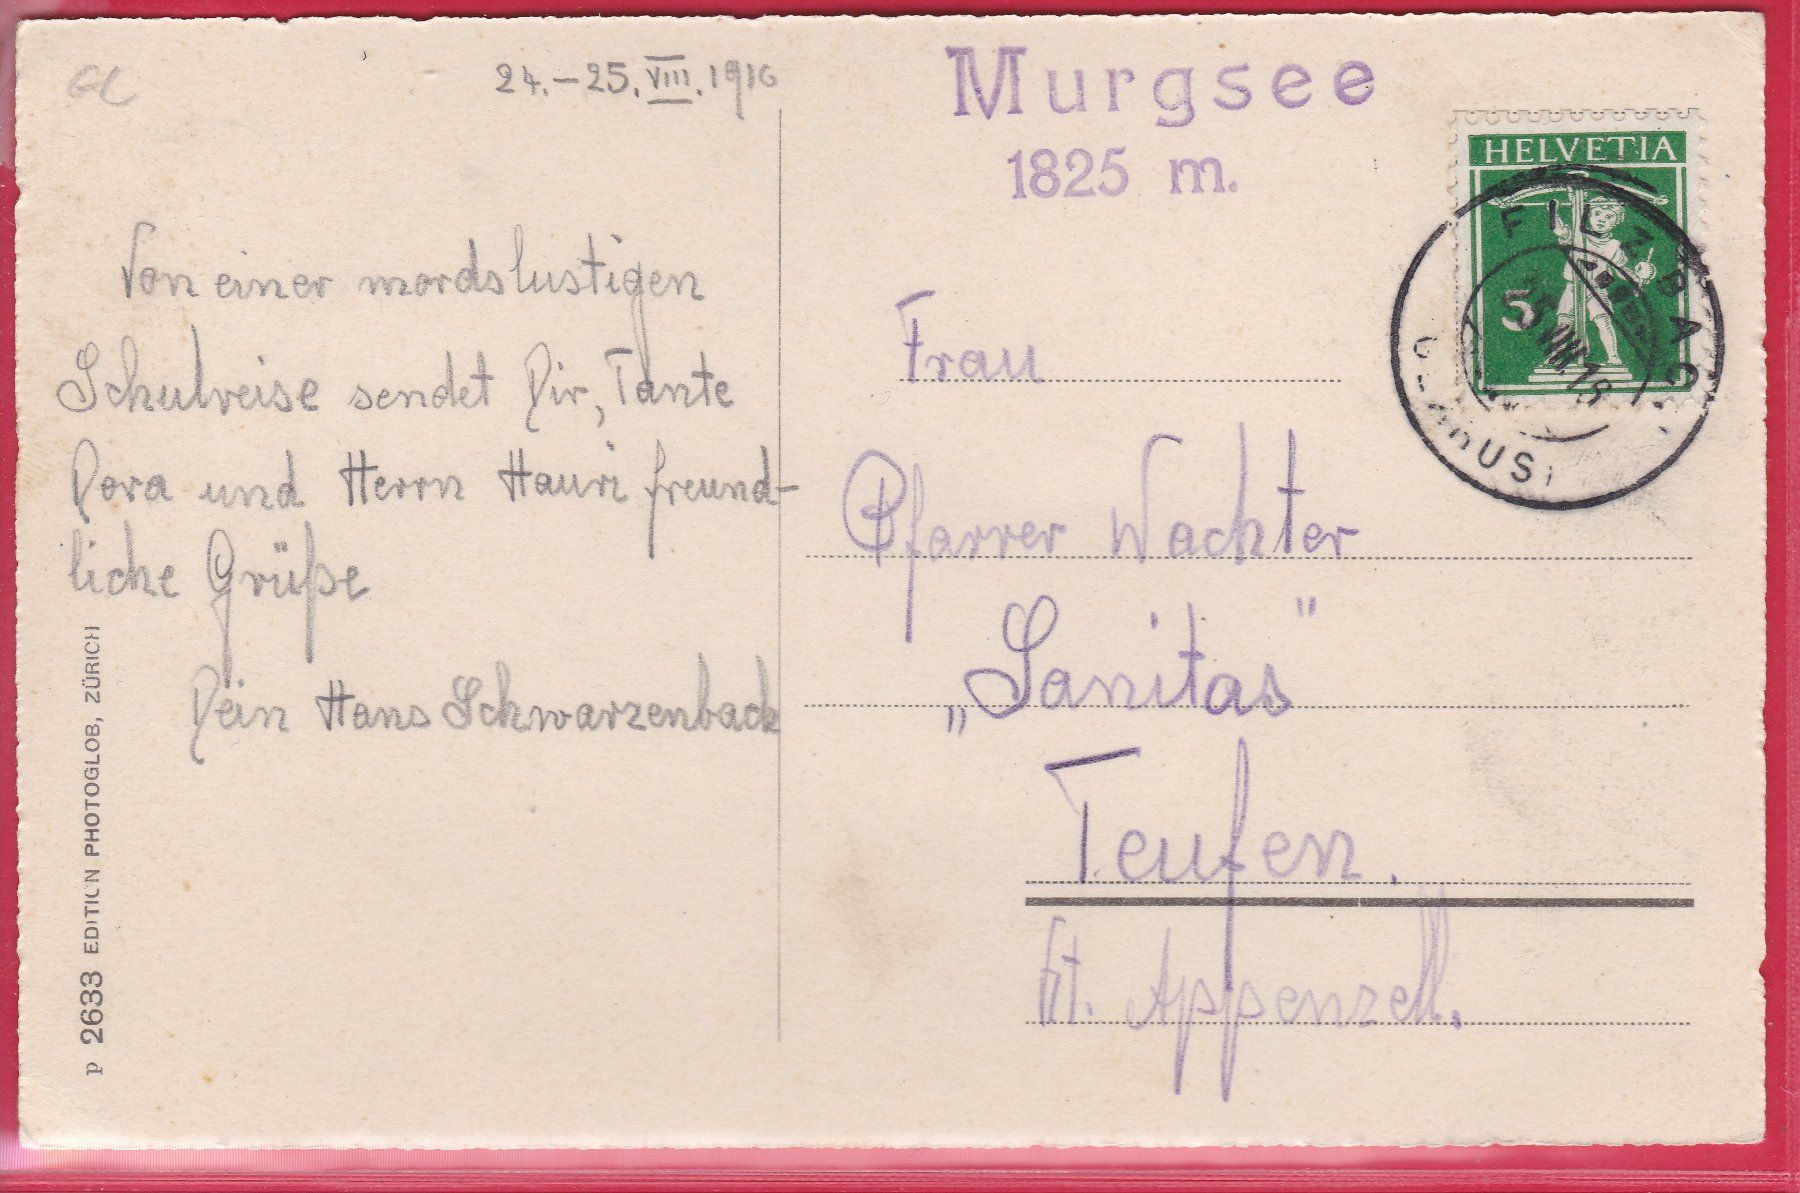 GL
24.–25. VIII. 1916
Murgsee
1825 m.
HELVETIA
5
FILZBACH
25. VIII. 16
(GLARUS)
Von einer mordslustigen
Schulreise sendet Dir, Tante
Dora und Herrn Hauri freund-
liche Grüße
Dein Hans Schwarzenback
Frau
Pfarrer Wachter
„Sanitas"
Teufen.
Kt. Appenzell.
p 2633 EDITION PHOTOGLOB, ZÜRICH